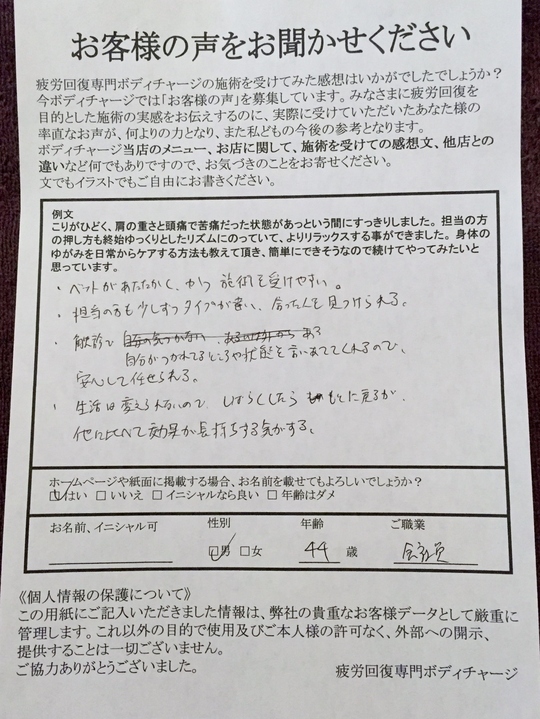 お客様の声をお聞かせください
疲労回復専門ボディチャージの施術を受けてみた感想はいかがでしたでしょうか？
今ボディチャージでは「お客様の声」を募集しています。みなさまに疲労回復を
目的とした施術の実感をお伝えするのに、実際に受けていただいたあなた様の
率直なお声が、何よりの力となり、また私どもの今後の参考となります。
ボディチャージ当店のメニュー、お店に関して、施術を受けての感想文、他店との
違いなど何でもありですので、お気づきのことをお寄せください。
文でもイラストでもご自由にお書きください。
例文
こりがひどく、肩の重さと頭痛で苦痛だった状態があっという間にすっきりしました。担当の方
の押し方も終始ゆっくりとしたリズムにのっていて、よりリラックスする事ができました。身体の
ゆがみを日常からケアする方法も教えて頂き、簡単にできそうなので続けてやってみたいと
思っています。
・ベットがあたたかく、かつ施術を受けやすい。
・担当の方も少しずつタイプが違い、合った人を見つけられる。
・触診で 自分の気づかない ある
自分がつかれてるところや状態を言いあててくれるので、
安心して任せられる。
・生活は変えられないので、しばらくしたらもとに戻るが、
他に比べて効果が長持ちする気がする。
ホームページや紙面に掲載する場合、お名前を載せてもよろしいでしょうか？
☑はい □いいえ □イニシャルなら良い □年齢はダメ
お名前、イニシャル可 性別 年齢 ご職業
☑男 □女 44 歳 会社員
《個人情報の保護について》
この用紙にご記入いただきました情報は、弊社の貴重なお客様データとして厳重に
管理します。これ以外の目的で使用及びご本人様の許可なく、外部への開示、
提供することは一切ございません。
ご協力ありがとうございました。 疲労回復専門ボディチャージ